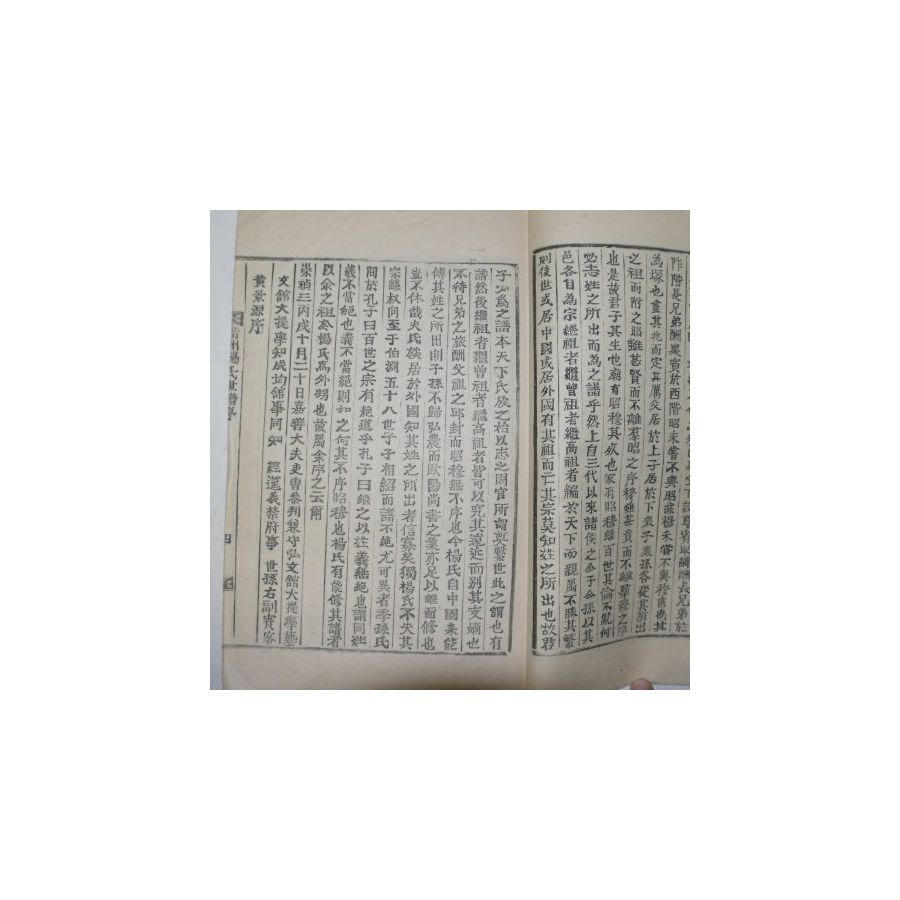 阼階長兄弟酬衆賓於西階昭未嘗不與昭齒穆未嘗不與穆齒也其
為塚也畫其兆而定其厲父居於上子居於下衆子衆孫各從其所出
之祖而附之昭雖甚賢而不離羣昭之序穆雖甚貴而不離羣穆之序
也是故君子其生也廟有昭穆其歿也家有昭穆雖百世其倫不能何
必志姓之所出而為之譜乎然上自三代以來諸侯之公子公孫以其
邑各自為宗繼祖者繼曾祖者繼高祖者編於天下而親屬不勝其繁
則後世或居中國或居外國有其祖而亡其宗莫知姓之所出也故君
子必為之譜本天下氏族之始以志之周官所謂奠繫世此之謂也有
譜然後繼祖者繼曾祖者繼高祖者皆可以究其遠近而別其支嫡也
不待兄弟之旅酬父祖之邱封而昭穆無不序也今楊氏自中國來能
傳其姓之所出則子孫不歸弘農而歐陽尚書之業亦足以繼而修也
豈不休哉夫氏族居於外國知其姓之所出者信寡矣獨楊氏不失其
宗繇叔向至于伯淵五十八世子子相紹而譜不絶尤可異者季孫氏
問於孔子曰百世之宗有絶道乎孔子曰繼之以姓義無絶也謂同姓
義不當絶也義不當絶則如之何其不序昭穆也楊氏有能修其譜者
以余之祖於楊氏為外甥也故屬余序之云爾
崇禎三丙戌十月二十日嘉善大夫吏曹參判兼守弘文館大提學藝
文館大提學知成均館事同知 經筵義禁府事 世孫右副賓客
黄景源序
清州楊氏世譜序